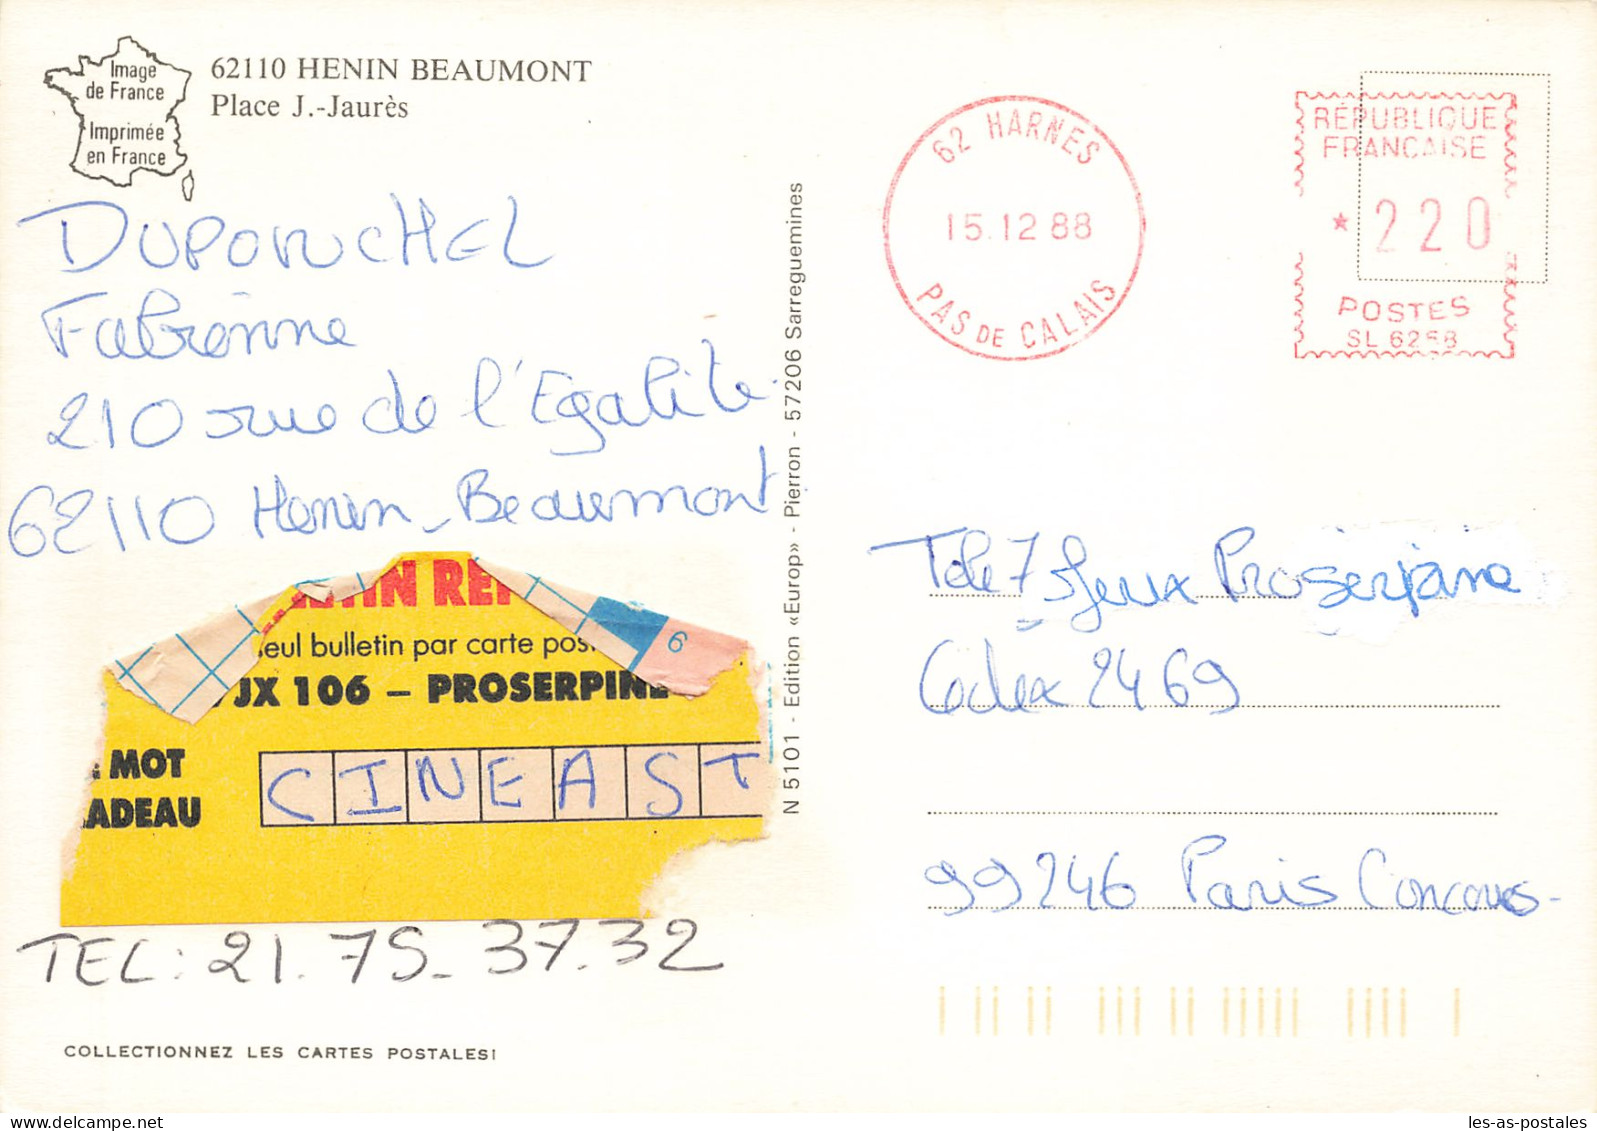 Image
de France
Imprimée
en France
62110 HENIN BEAUMONT
Place J.-Jaurès
DUPONCHEL
Fabienne
210 rue de l'Egalité
62110 Henin-Beaumont
seul bulletin par carte pos
UX 106 – PROSERPINE
MOT
ADEAU
CINEAST
TEL: 21.75.37.32
COLLECTIONNEZ LES CARTES POSTALES!
N 5101 - Edition «Europ» - Pierron - 57206 Sarreguemines
62 HARNES
15.12 88
PAS DE CALAIS
RÉPUBLIQUE
FRANCAISE
* 220
POSTES
SL 6258
Tele 7 Jeux Proserpine
Cedex 2469
99246 Paris Concours
les-as-postales